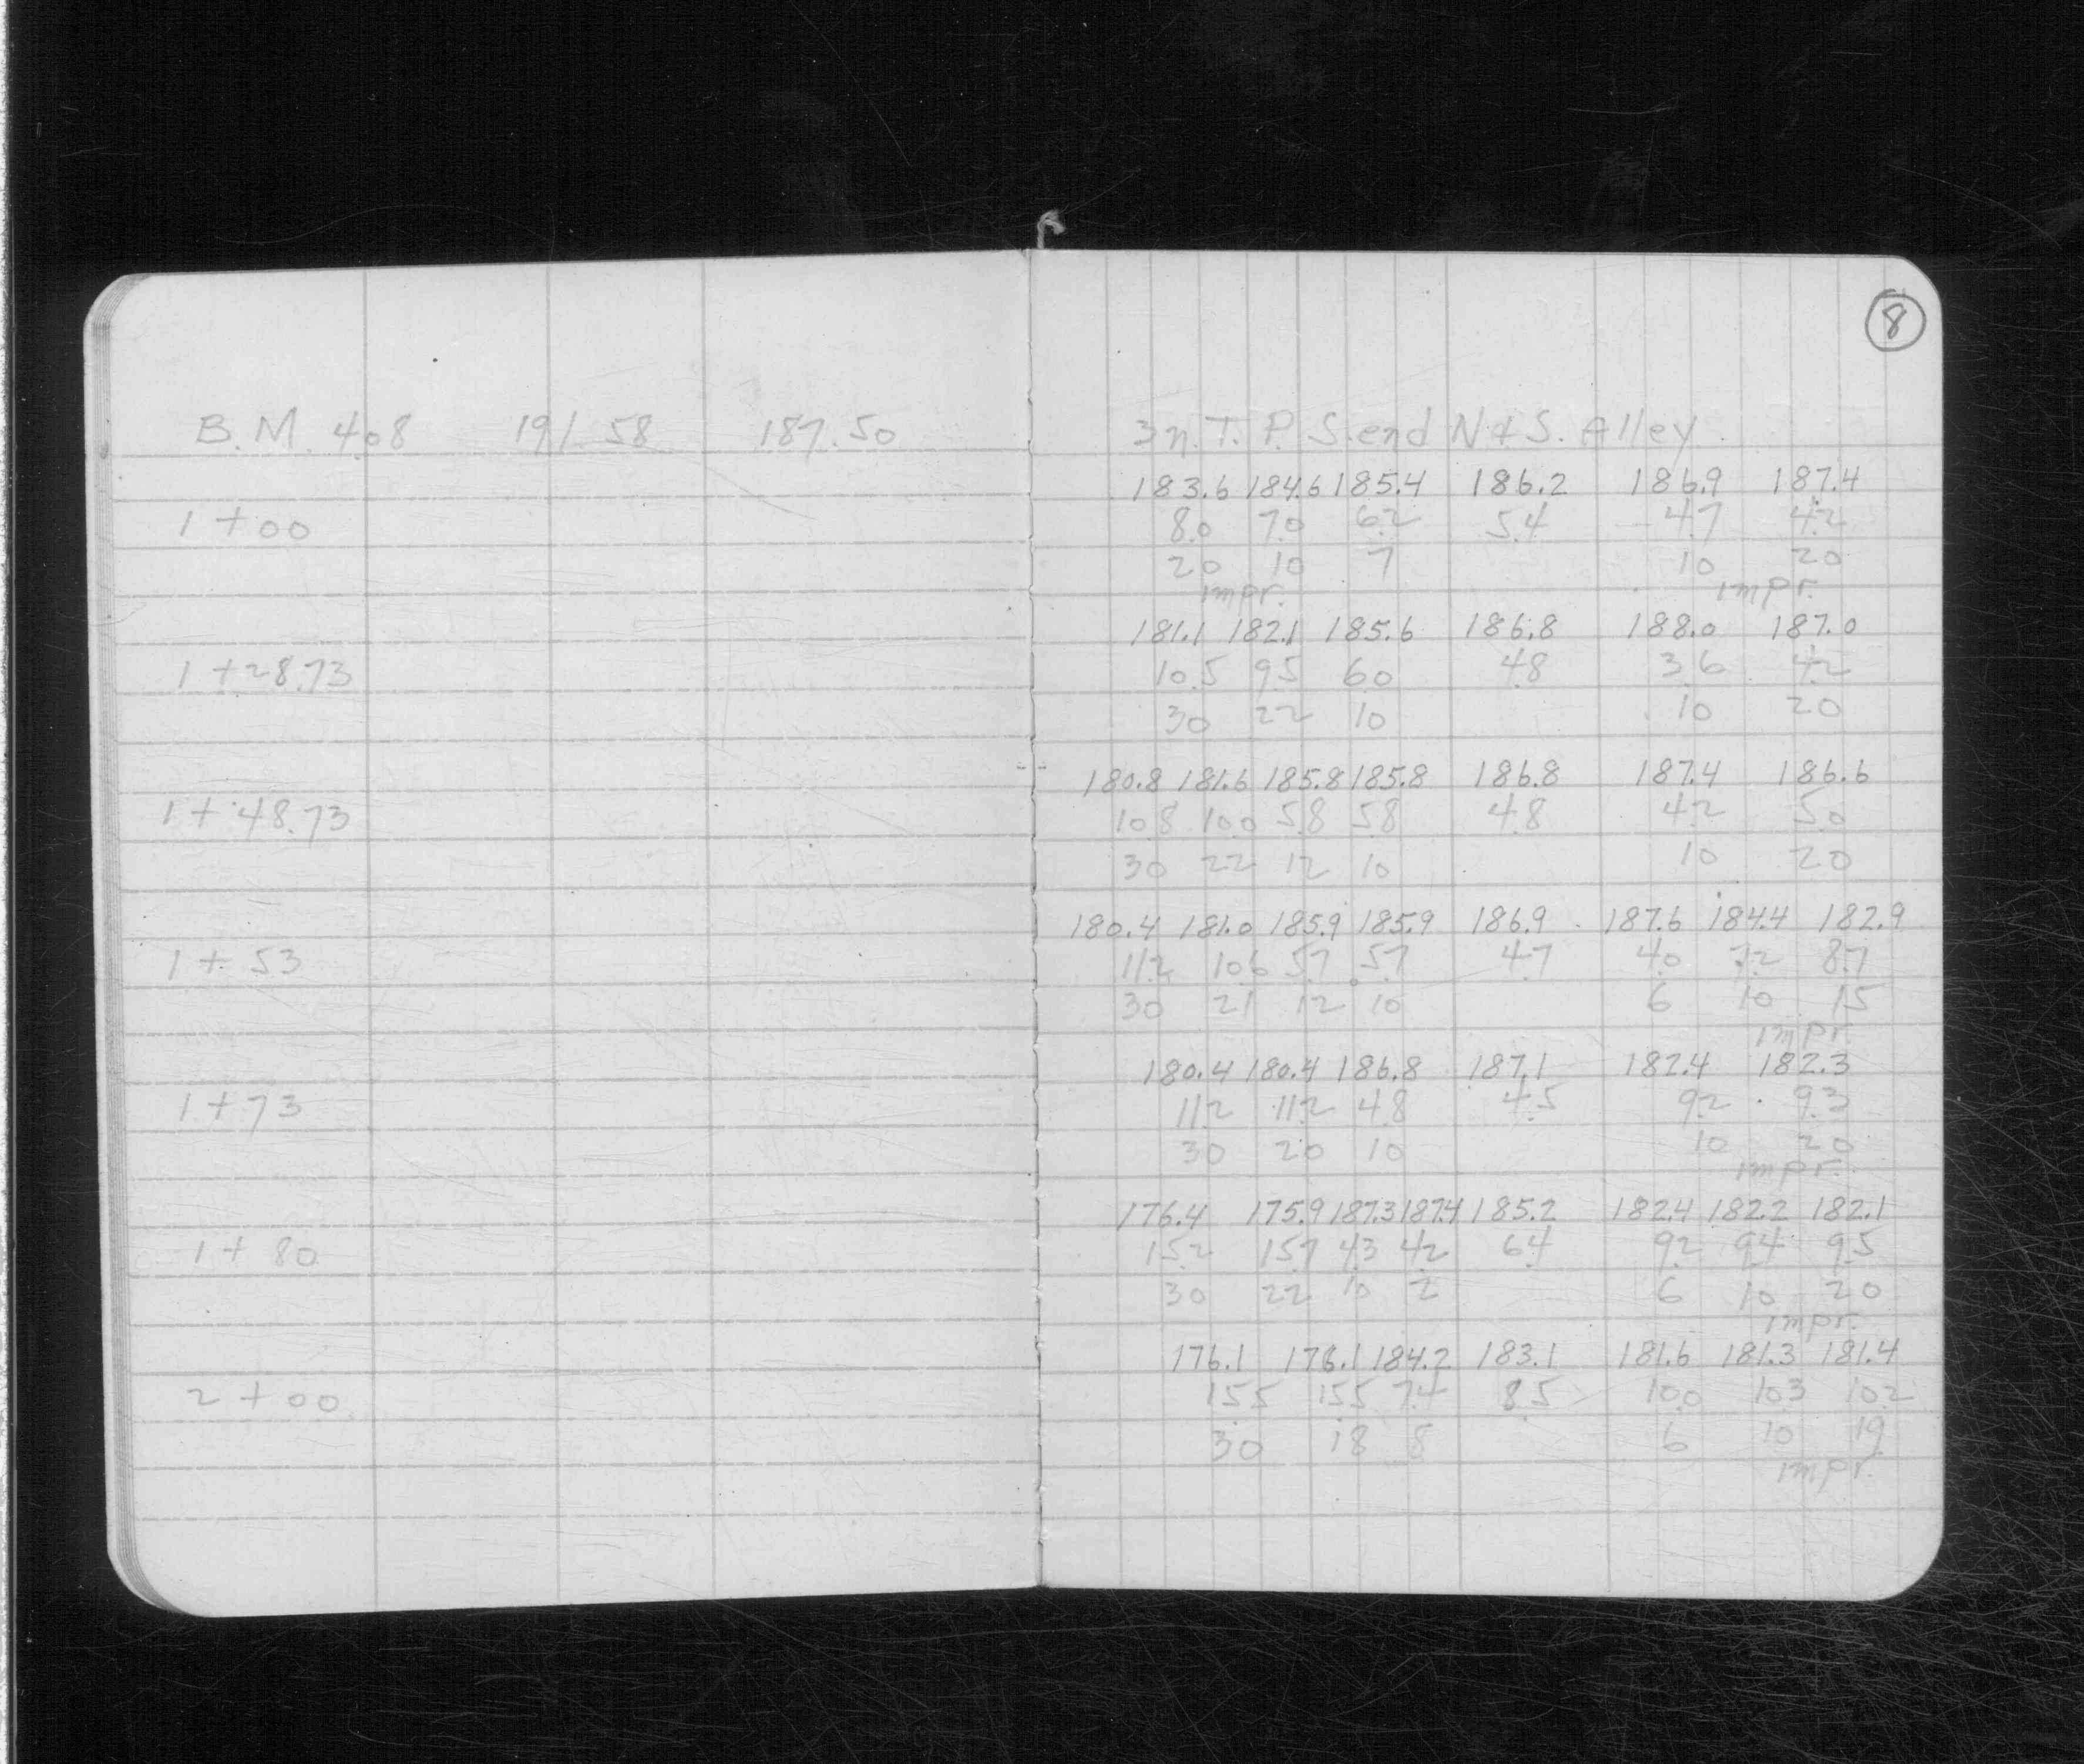 8
B.M. 4.08 191.58 187.50 3n. T. P. S. end N & S. Alley.
183.6 184.6 185.4 186.2 186.9 187.4
1 + 00 8.0 7.0 6.2 5.4 4.7 4.2
20 10 7 10 20
impr. impr.
181.1 182.1 185.6 186.8 188.0 187.0
1 + 28.73 10.5 9.5 6.0 4.8 3.6 4.2
30 22 10 10 20
180.8 181.6 185.8 185.8 186.8 187.4 186.6
1 + 48.73 10.8 10.0 5.8 5.8 4.8 4.2 5.0
30 22 12 10 10 20
180.4 181.0 185.9 185.9 186.9 187.6 184.4 182.9
1 + 53 11.2 10.6 5.7 5.7 4.7 4.0 7.2 8.7
30 21 12 10 6 10 15
impr.
180.4 180.4 186.8 187.1 182.4 182.3
1 + 73 11.2 11.2 4.8 4.5 9.2 9.3
30 20 10 10 20
impr.
176.4 175.9 187.3 187.4 185.2 182.4 182.2 182.1
1 + 80 15.2 15.7 4.3 4.2 6.4 9.2 9.4 9.5
30 22 10 2 6 10 20
impr.
176.1 176.1 184.2 183.1 181.6 181.3 181.4
2 + 00 15.5 15.5 7.4 8.5 10.0 10.3 10.2
30 18 8 6 10 19
impr.